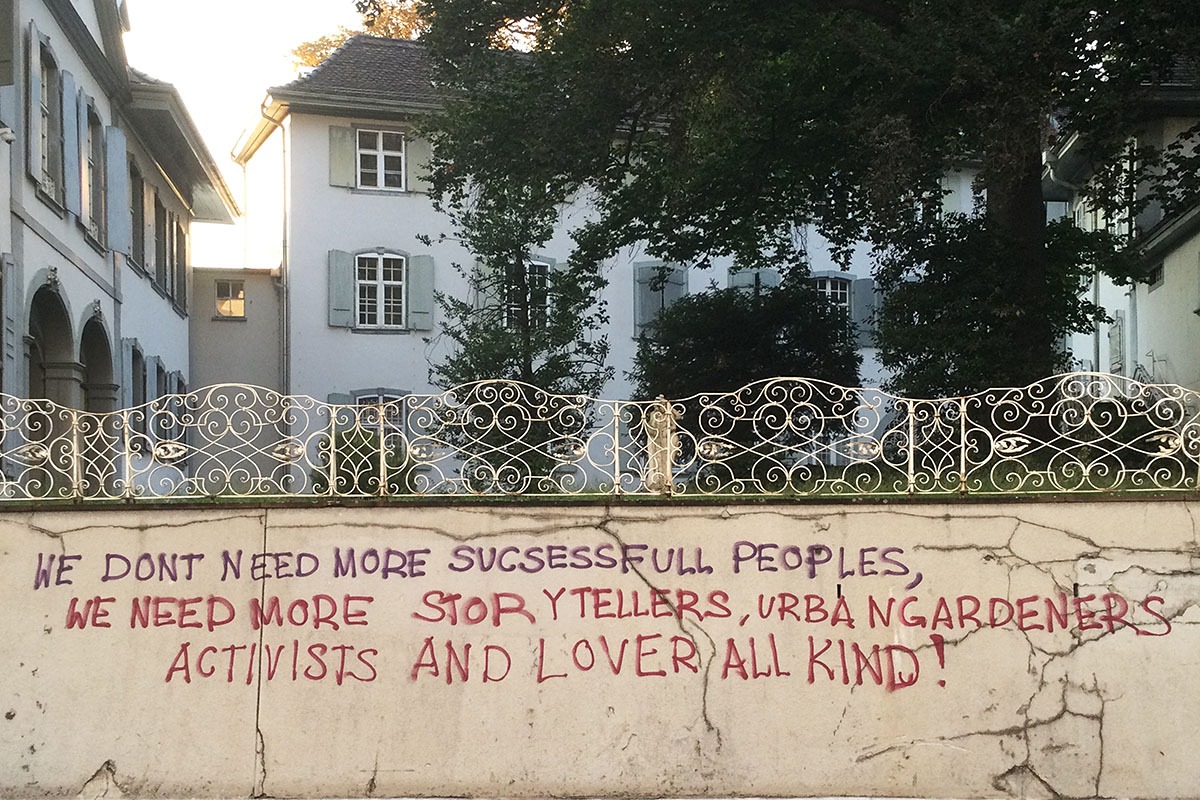 WE DONT NEED MORE SUCSESSFULL PEOPLES,
WE NEED MORE STORYTELLERS, URBANGARDENERS
ACTIVISTS AND LOVER ALL KIND!